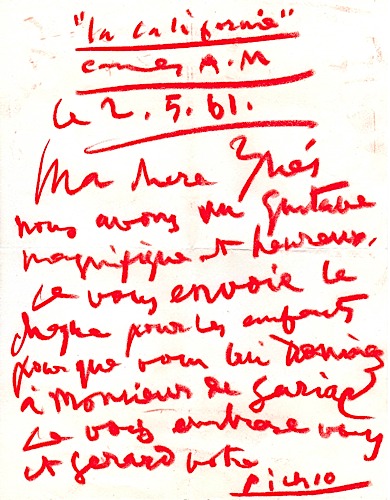 "la Californie"
Cannes A.M
le 2.5.61.
Ma chere Inès
nous avons vu Gustave
magnifique et heureux.
Je vous envoie le
cheque pour les enfants
pour que vous lui donniez
à Monsieur de
Je vous embrasse vous
et Gerard votre
Picasso